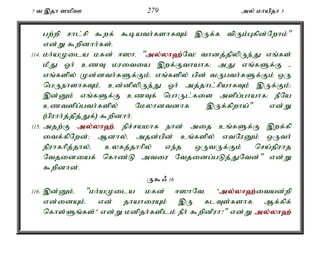 7 வ இதா ஸமிஊ 279 அல் மாயிதா 5
பற்றி சாட்சி கூறக் கூடியவர்களாகவும் இருக்க விரும்புகின்றோம்"
என்று கூறினார்கள்.
114. மர்யமுடைய மகன் ஈஸா, "அல்லாஹ்வே! வானத்திலிருந்து எங்கள்
மீது ஓர் உணவு மரவையை இறக்குவாயாக; அது எங்களுக்கு -
எங்களில் முன்னவர்களுக்கும், எங்களில் பின் வருபவர்களுக்கும் ஒரு
பெருநாளாகவும், உன்னிலிருந்து ஓர் அத்தாட்சியாகவும் இருக்கும்;
இன்னும் எங்களுக்கு உணவுப் பொருட்களை அளிப்பாயாக; நீயே
உணவளிப்பவர்களில் மேலானவனாக இருக்கிறாய்" என்று
(பிரார்த்தித்துக்) கூறினார்.
115. அதற்கு அல்லாஹ், நிச்சயமாக நான் அதை உங்களுக்கு இறக்கி
வைக்கிறேன்; ஆனால், அதன்பின் உங்களில் எவரேனும் ஒருவர்
நிராகரித்தால், உலகத்தாரில் எந்த ஒருவருக்கும் செய்திராத
வேதனையைக் கொண்டு அவரை வேதனைப்படுத்துவேன்" என்று
கூறினான்.
ருகூஃ 16
116. இன்னும், "மர்யமுடைய மகன் ஈஸாவே, 'அல்லாஹ்வையன்றி
என்னையும், என் தாயாரையும் இரு கடவுள்களாக ஆக்கிக்
கொள்ளுங்கள்' என்று மனிதர்களிடம் நீர் கூறினீரா?" என்று அல்லாஹ்